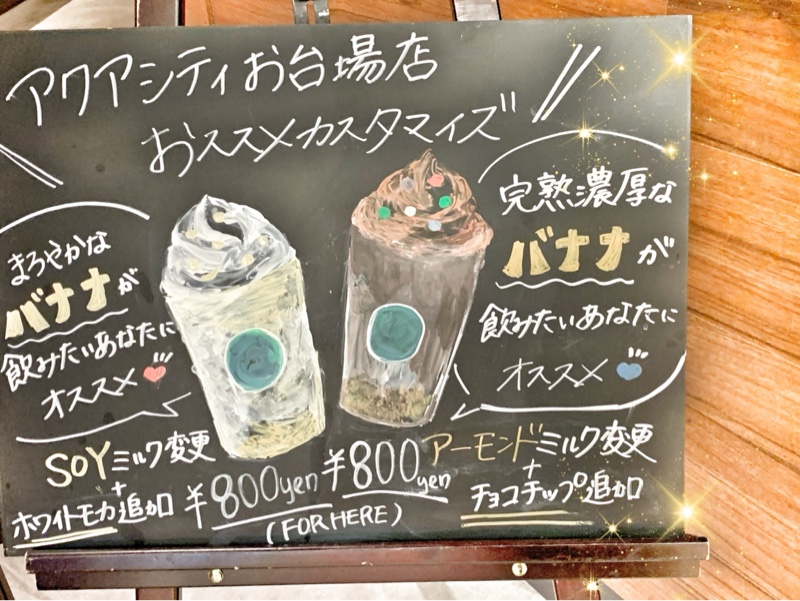 アクアシティお台場店
おススメカスタマイズ
まろやかな
バナナが
飲みたいあなたに
オススメ
完熟濃厚な
バナナが
飲みたいあなたに
オススメ
SOYミルク変更
+
ホワイトモカ追加
¥800yen
¥800yen
(FOR HERE)
アーモンドミルク変更
+
チョコチップ追加